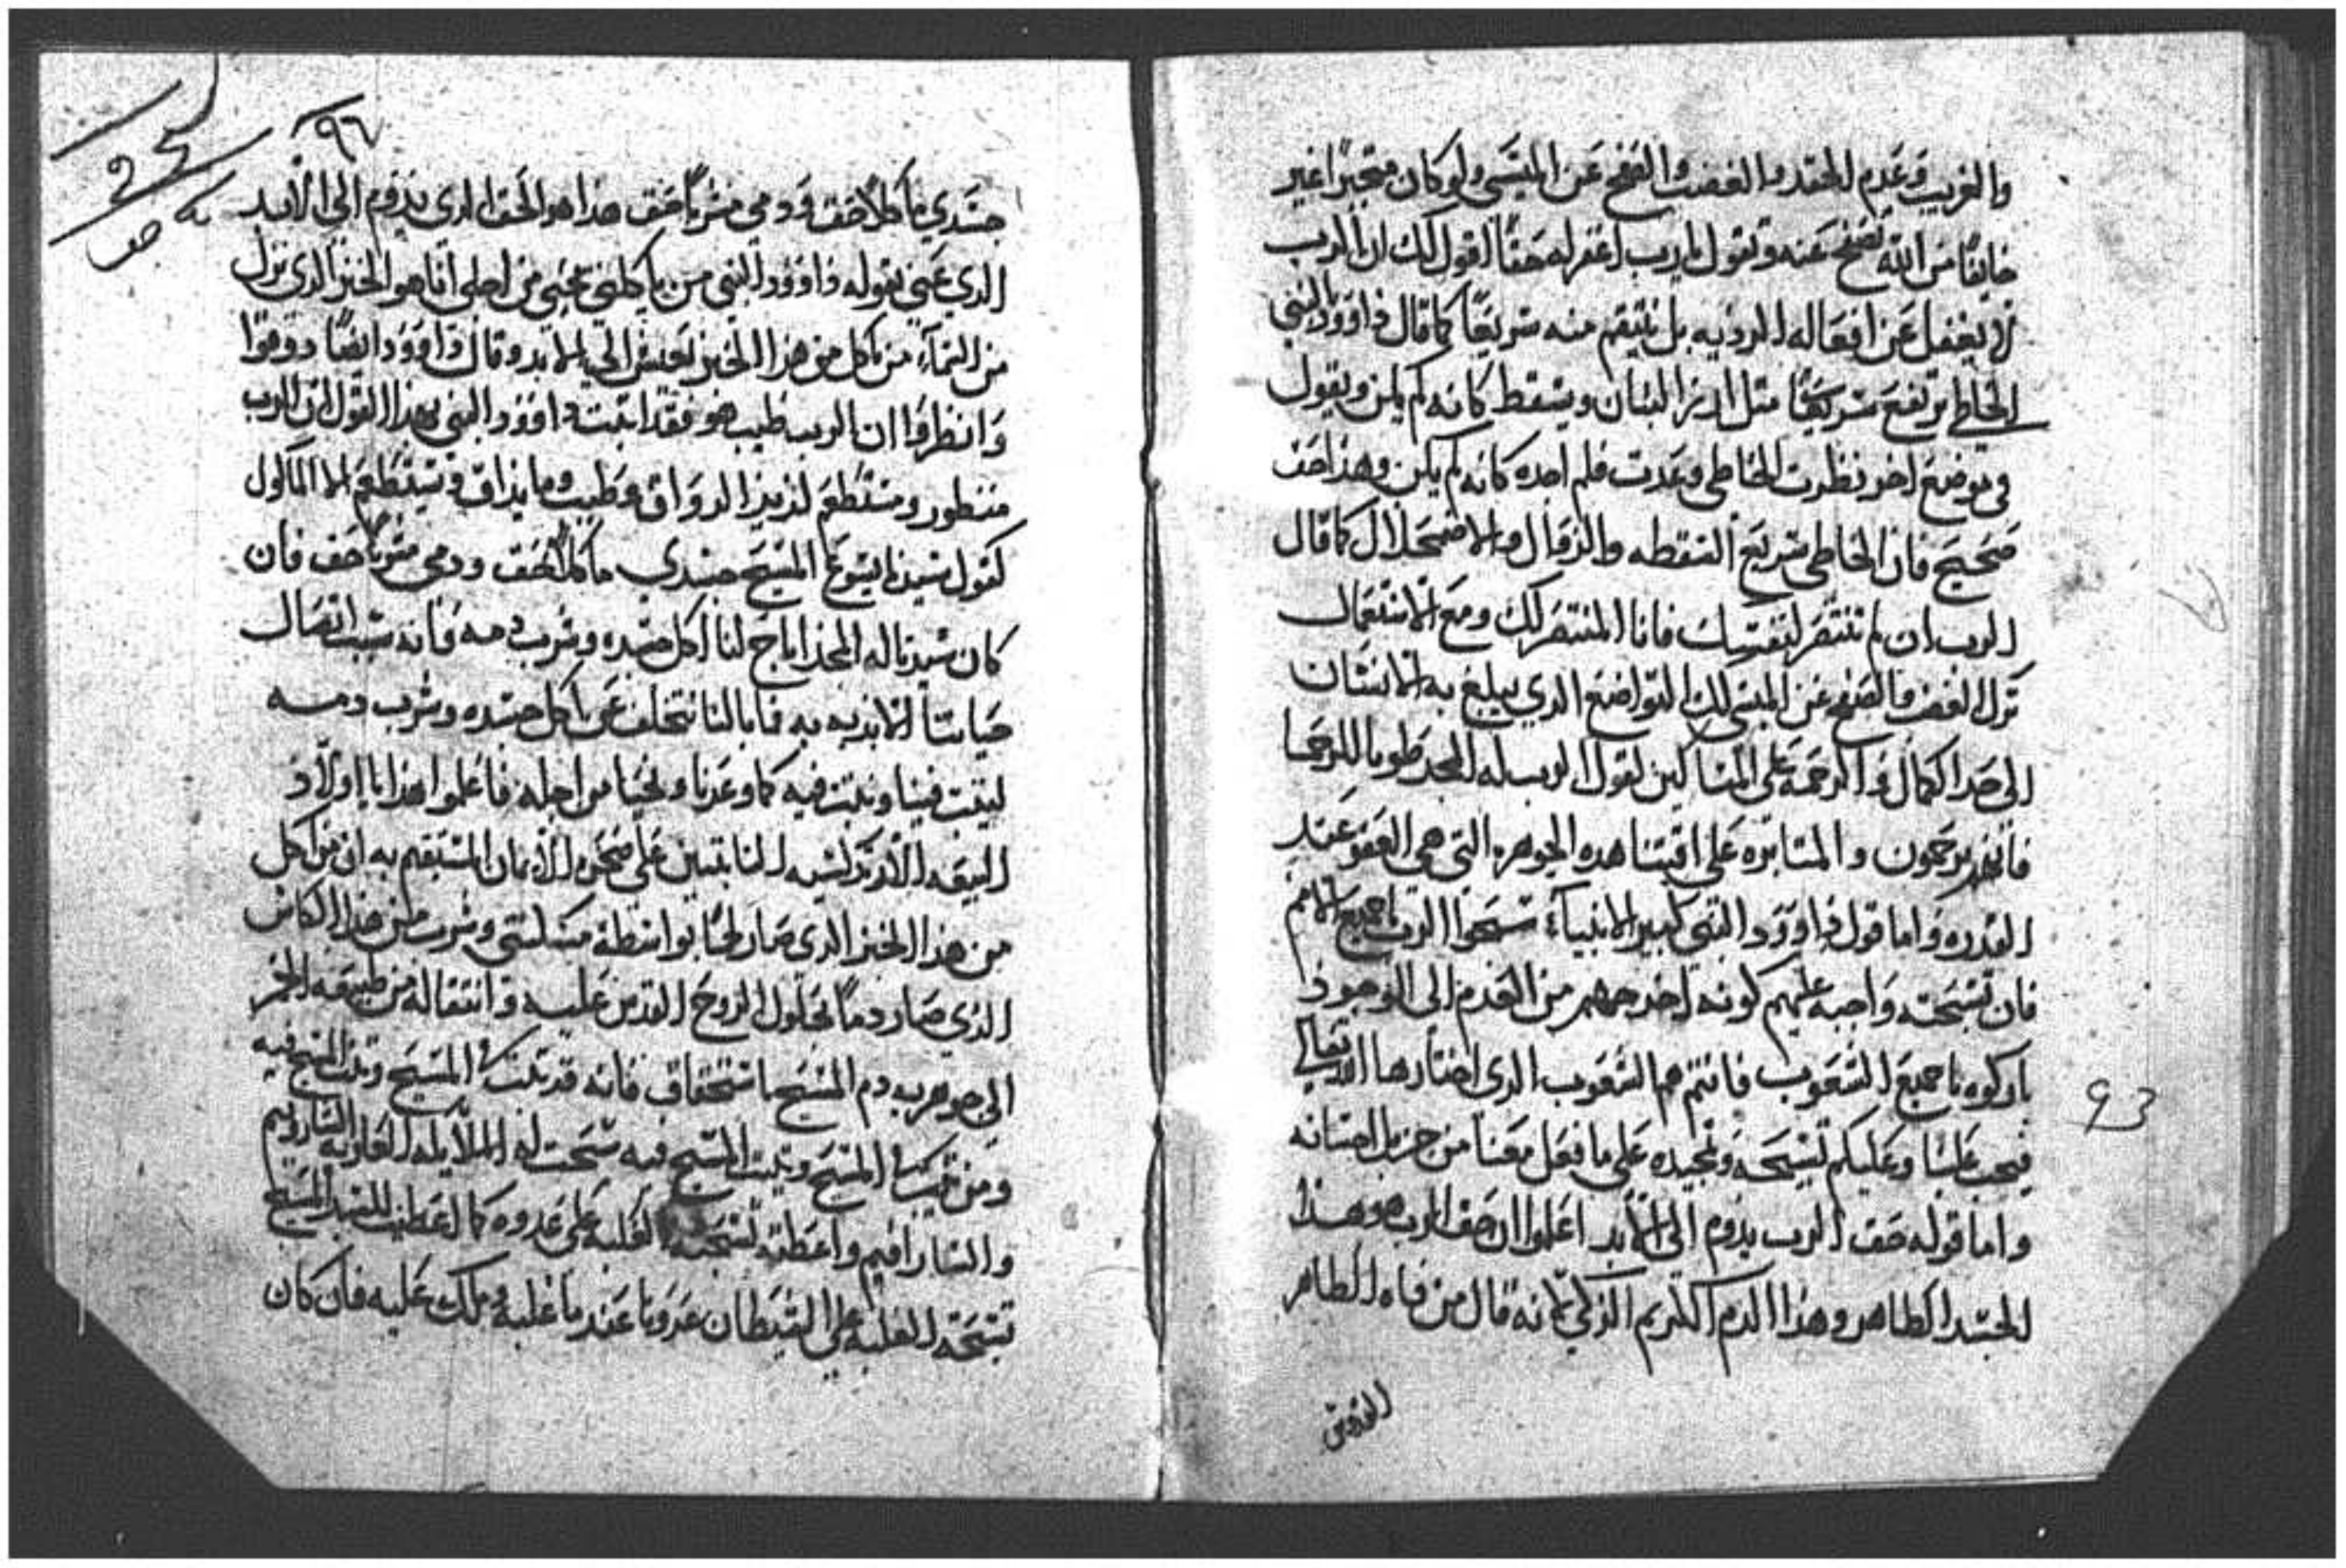 والغريب وعدم الحقد والغضب والصفح عن المسى ولو كان متجبراً غير
خايفاً من الله تصفح عنه وتقول يارب اغفر له حقاً اقول لك ان الرب
لا يغفل عن افعاله الرديه بل ينتقم منه سريعاً كما قال داوود النبي
الخاطي يرتفع سريعاً مثل ارز لبنان ويسقط كانه لم يكن ويقول
في موضع اخر نظرت الخاطي وعدت فلم اجده كانه لم يكن وهذا حق
صحيح فان الخاطي سريع السقطه والزوال والاضمحلال كما قال
الرب ان لم تنتصر لنفسك فانا المنتصر لك ومع الاستعمال
ترك الغضب والصفح عن المسي لك التواضع الدي يبلغ به الانسان
الى حد الكمال والرحمة على المساكين لقول الرب له المجد طوبا للرحما
فانهم يرحمون والمتابره على اقتنا هده الجوهره التي هي العفو عند
القدره واما قول داوود النبي كبير الانبياء سبحوا الرب يا جميع الامم
فان تسبحته واجبه عليهم كونه اخرجهم من العدم الى الوجود
باركوه يا جميع الشعوب فانتم هم الشعوب الدي اختارها الله تعالى
فيجب علينا وعليكم تسبيحه وتمجيده على ما فعل معنا من جزيل احسانه
واما قوله حق الرب يدوم الى الابد اعلموا ان حق الرب هو هذا
الجسد الطاهر وهذا الدم الكريم الزكي لانه قال من فاه الطاهر
القدوس
93
٩٦
جسدي ماكلاً حق ودمي مشرباً حق هذا هو الحق الدي يدوم الى الابد
الدي عني بقوله داوود النبي من ياكلني يحيى من اجلي انا هو الخبز الدي نزل
من السماء من ياكل من هذا الخبز يعيش الي الابد وقال داوود ايضاً دوقوا
وانظروا ان الرب طيب هو فقد اتبت داوود النبي بهذا القول ان الرب
منظور ومستطعم لذيذ الدواق وطيب وما يذاق ويستطعم الا الماكول
كقول سيدنا يسوع المسيح جسدي ماكلاً حق ودمي مشرباً حق فان
كان سيدنا له المجد اباح لنا اكل جسده وشرب دمه فانه سبب اتصال
حياتنا الابديه به فما بالنا نتخلف عن اكل جسده وشرب دمه
ليتبت فينا ونتبت فيه كما وعدنا ونحيا من اجله فاعلموا هذا يا اولاد
البيعه الارتدكسيه التابتين على صخرة الايمان المستقيم به ان من اكل
من هذا الخبز الدي صار لحماً بواسطة وشرب من هذا الكاس
الذي صار دماً بحلول الروح القدس عليه وانتقاله من طبيعة الخمر
الى جوهر دم المسيح باستحقاق فانه قد تبت في المسيح وتبت المسيح فيه
ومن تبت في المسيح وتبت المسيح فيه سبحت له الملايكه الشاروبيم
والسارافيم واعطته تسبحة الغلبه على عدوه كما اعطت للسيد المسيح
تسبحة الغلبه على الشيطان عدونا عند ما غلبه وملك عليه فان كان